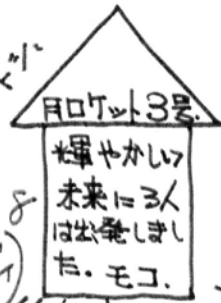 月ロケット3号.
輝やかしい
未来に3人
は出発しまし
た。モコ.